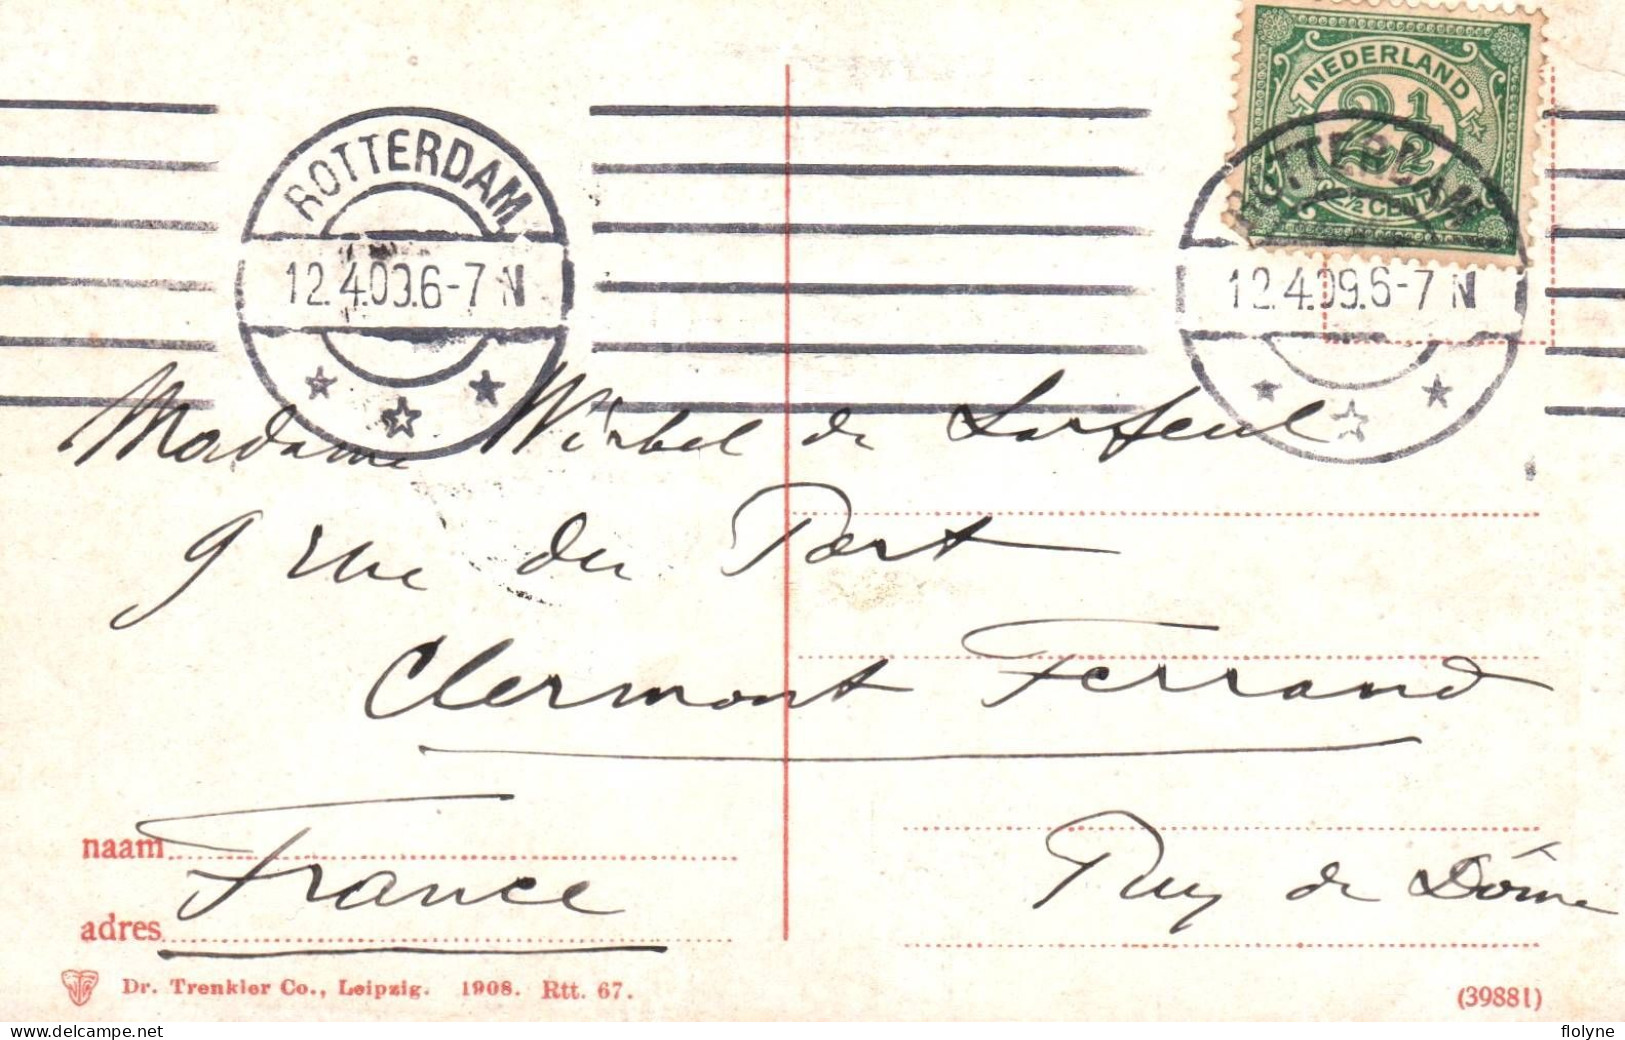 NEDERLAND
2 1/2
2 1/2 CENT
ROTTERDAM
12.4.09.6-7 N
ROTTERDAM
12.4.09.6-7 N
Madame Wirbel de
9 rue du Port
Clermont Ferrand
Puy de Dôme
France
naam
adres
Dr. Trenkler Co., Leipzig. 1908. Rtt. 67.
(39881)
delcampe.net
flolyne